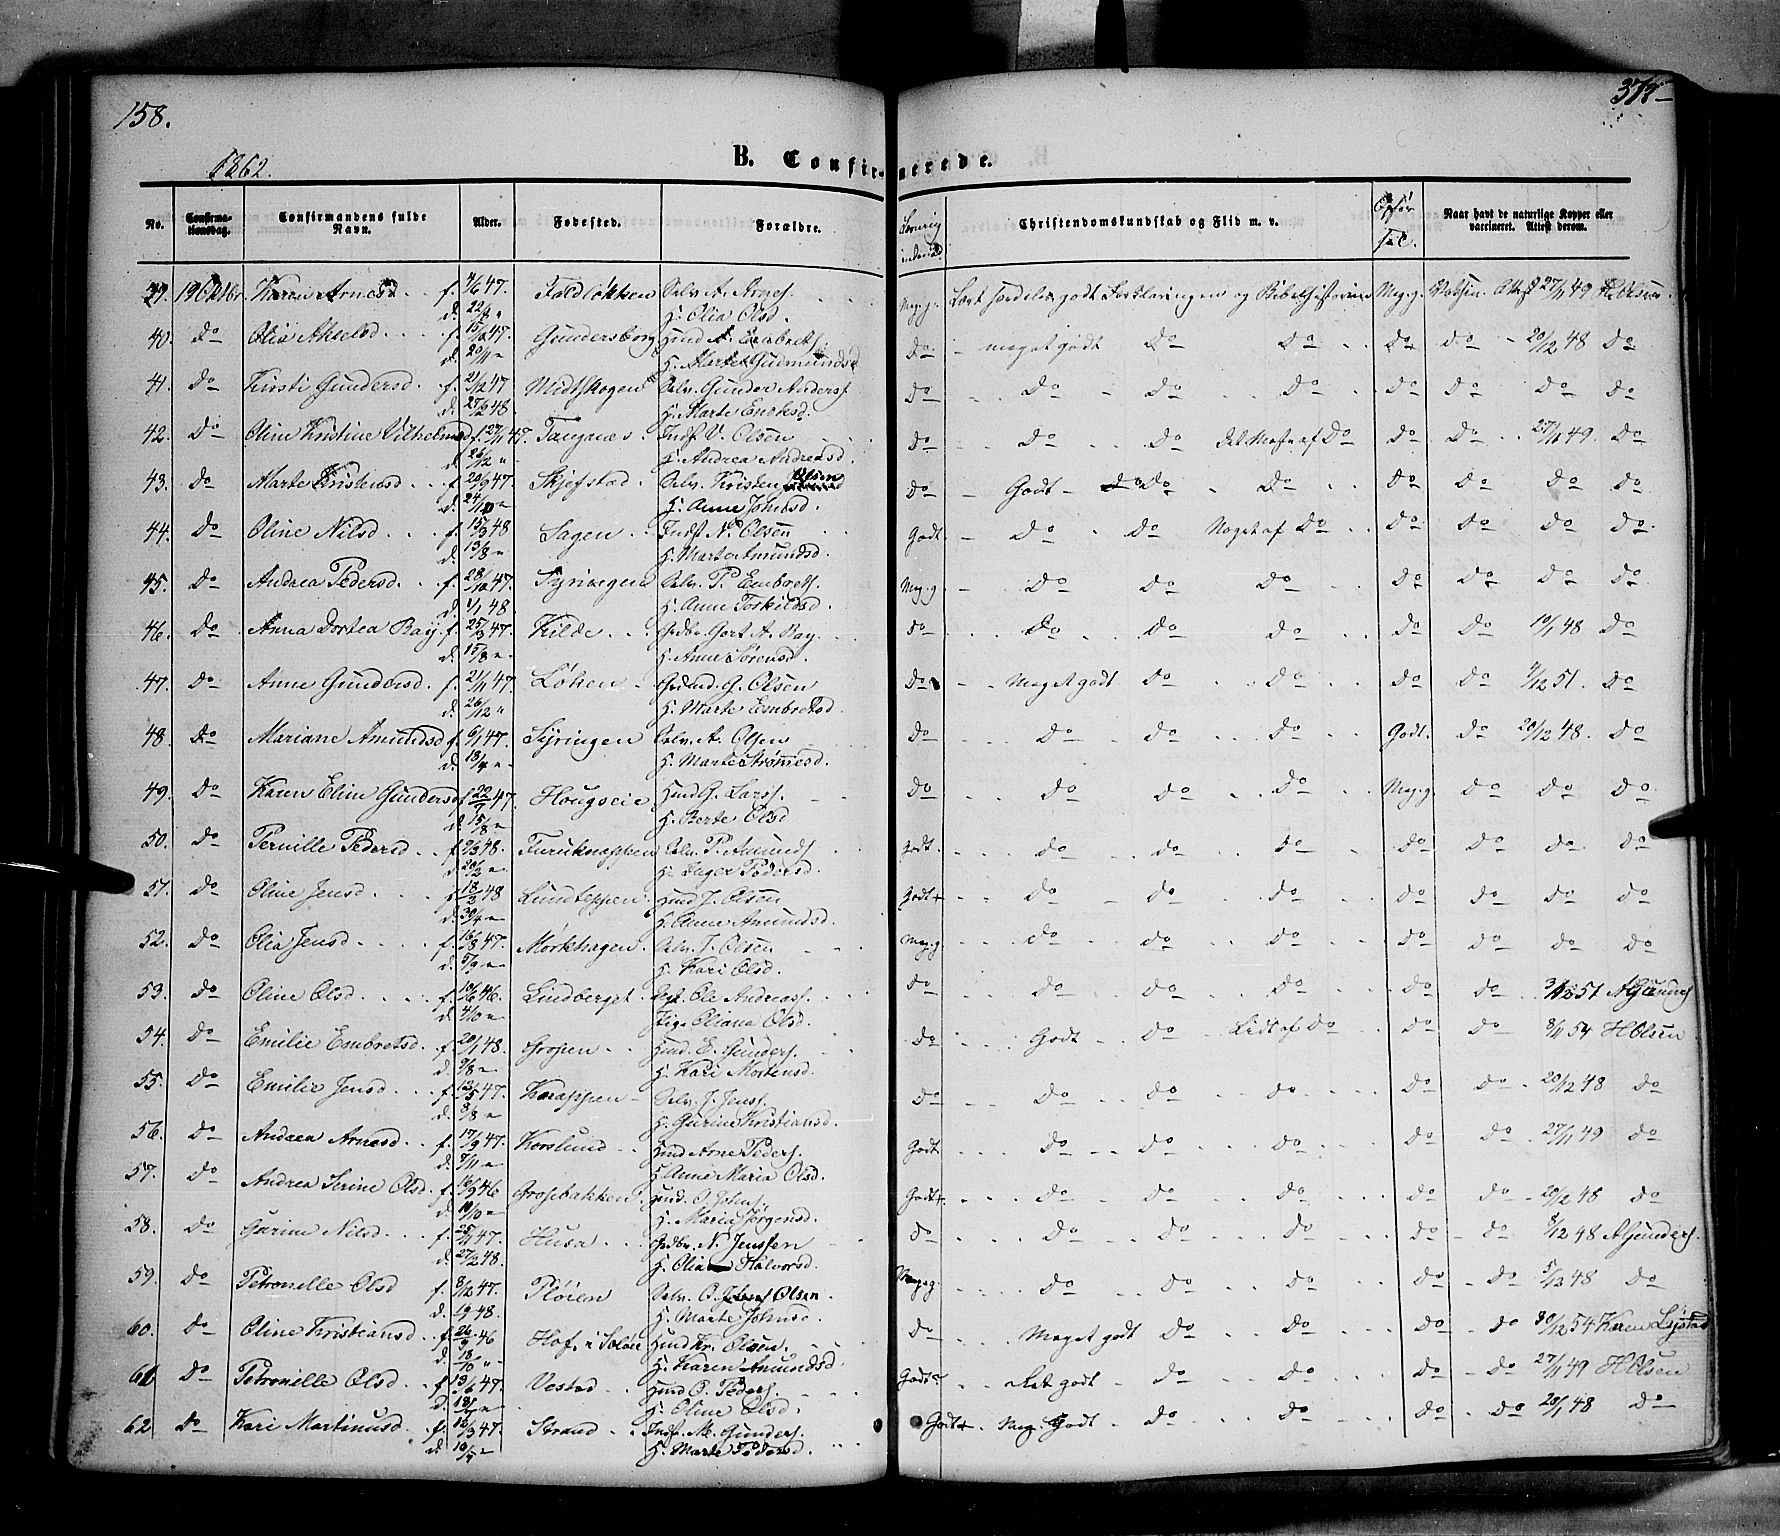 158.
378
1862.
B. Confirmerede.
No.
Confirma-
tionsdag.
Confirmandens fulde
Navn.
Alder.
Fødested.
Forældre.
Christendomskundskab og Flid m. v.
Opfør
sel.
Naar havt de naturlige Kopper eller
vaccineret. Attest derom.
39. 19 Oktbr. Karen Arnesd. f. 4/6 47. Faldløkken Selv. A. Arnes. Meg. g. Læst særdeles godt Forklaringen og Bibelhistorien Meg. g. Attest 27/11 49 HOlsen
d. 22/8 " H. Olia Olsd.
40. Do Olia Akselsd f. 15/10 47. Gundersborg Huusd A. Embrets. Do - meget godt Do Do Do Do 20/12 48 Do
H. Marte Gudmundsd
41. Do Kirsti Gundersd. f. 21/12 47 Midtskogen Selv. Gunder Anders. Do Do Do Do Do Do Do Do
d. 27/2 48. H. Marte Engebretsd.
42. Do Oline Kristine Vilhelmsd f. 27/11 47. Tangnæs Indf. V. Olsen Do Do Do Det Meste af Do Do Do 27/11 49. Do
d. 26/12 " H. Andrea Andreasd.
43. Do Marte Kristensd. f. 20/9 47. Skjefstad. Selv. Kristen Olsen Do - Godt - Do Do Do Do Do Do
d. 24/10 " H. Anne Johnsd.
44. Do Oline Nilsd. f. 15/3 48 Sagen Indf. N. Olsen Godt. Do Do Noget af Do Do Do Do Do
d. 13/8 " H. Marte Amundsd.
45. Do Andrea Pedersd. f. 28/10 47. Syringen Selv. P. Embrets. Meg. g. Do Do Do Do Do Do Do
d. 1/1 48. H. Anne Torkildsd.
46. Do Anna Dortea Bay. f. 25/3 47. Kilde Grdbr. Gort A. Bay. Do Do Do Do Do Do 10/1 48 Do
d. 15/8 " H. Anne Sørensd.
47. Do Anne Gundersd. f. 21/11 47. Løken G. Olsen Do - Meget godt Do Do Do Do 4/12 51. Do
d. 26/12 " H. Marte Embretsd.
48. Do Mariane Amundsd f. 6/1 47. Syringen Selv. A. Olsen Do Do Do Do Godt. Do 20/12 48. Do
d. 18/4 " H. Marte Strømesd.
49. Do Karen Eline Gundersd f. 22/7 47. Hougseie Huusd G. Larss. Do Do Do Do Meg. g. Do Do Do
d. 15/8 " H. Berte Olsd
50. Do Pernille Pedersd f. 9/3 48. Furuknappen Selv. P. Amunds. Godt. Do Do Do Do Do Do Do
H. Inger Pedersd.
51. Do Oline Jensd. f. 13/3 48 Lundteppen Huusd J. Olsen Godt+ Do Do Do Do Do Do Do
d. 30/4 " H. Anne Amundsd.
52. Do Olia Jensd. f. 16/8 47. Mørkhagen. Selv. J. Olsen Meg. g Do Do Do Do Do Do Do
d. 5/9 " H. Kari Olsd.
53. Do Oline Olsd. f. 10/6 46. Lindberget Ole Andreass. Do Do Do Do Do Do 51 AGunders
d. 4/10 " Pige Oliana Olsd.
54. Do Emilie Embretsd. f. 20/1 48. Grosen Huusd. E. Gunders. Do Godt Do Lidt af Do Do Do 8/11 54 HOlsen
d. 9/8 " H. Kari Mortensd.
55. Do Emilie Jensd. f. 13/5 47. Knappen Selv. J. Jens. Do Do Do Do Do Do 20/12 48 Do
d. 8/8 " H. Gurine Kristiansd.
56. Do Andrea Arnesd. f. 17/9 47. Korslund Huusd Arne Peders. Godt Do Do Do Do Do 27/11 49 Do
d. 7/11 " H. Anne Maria Olsd.
57. Do Andrea Serine Olsd. f. 16/9 46 Grosebakken Huusd. O. Johns. Godt+ Do Do Do Do Do 20/12 48 Do
d. 10/10 " H. Maria Jørgensd.
58. Do Gurine Nilsd. f. 25/11 47. Husa Grdbr. N. Jenssen Do Do Do Do Do Do 8/12 48 AGunders.
d. 27/2 48. H. Olia Halvorsd.
59. Do Petronille Olsd f. 8/12 47. Pløien Selv. O. Olsen. Meg. g. Do Do Do Do Do 5/12 48 Do
H. Marte Johnsd.
60. Do Oline Kristiansd. f. 26/3 46 Hof i Soløer Huusd Kr. Olsen. Do Meget godt Do Do Do Do 30/12 54 Karen
d. 18/10 " H. Karen Amundsd.
61. Do Petronille Olsd. f. 13/6 47. Vestad Huusd O. Peders. Godt Ret godt Do Do Do Do 27/11 49 HOlsen
H. Oline Olsd.
62. Do Kari Martinusd. f. 16/3 47 Strand Indf. M. Gunders. Godt+ Meg. Godt Do Do Do Do 20/1 48 Do
H. Marte Pedersd.